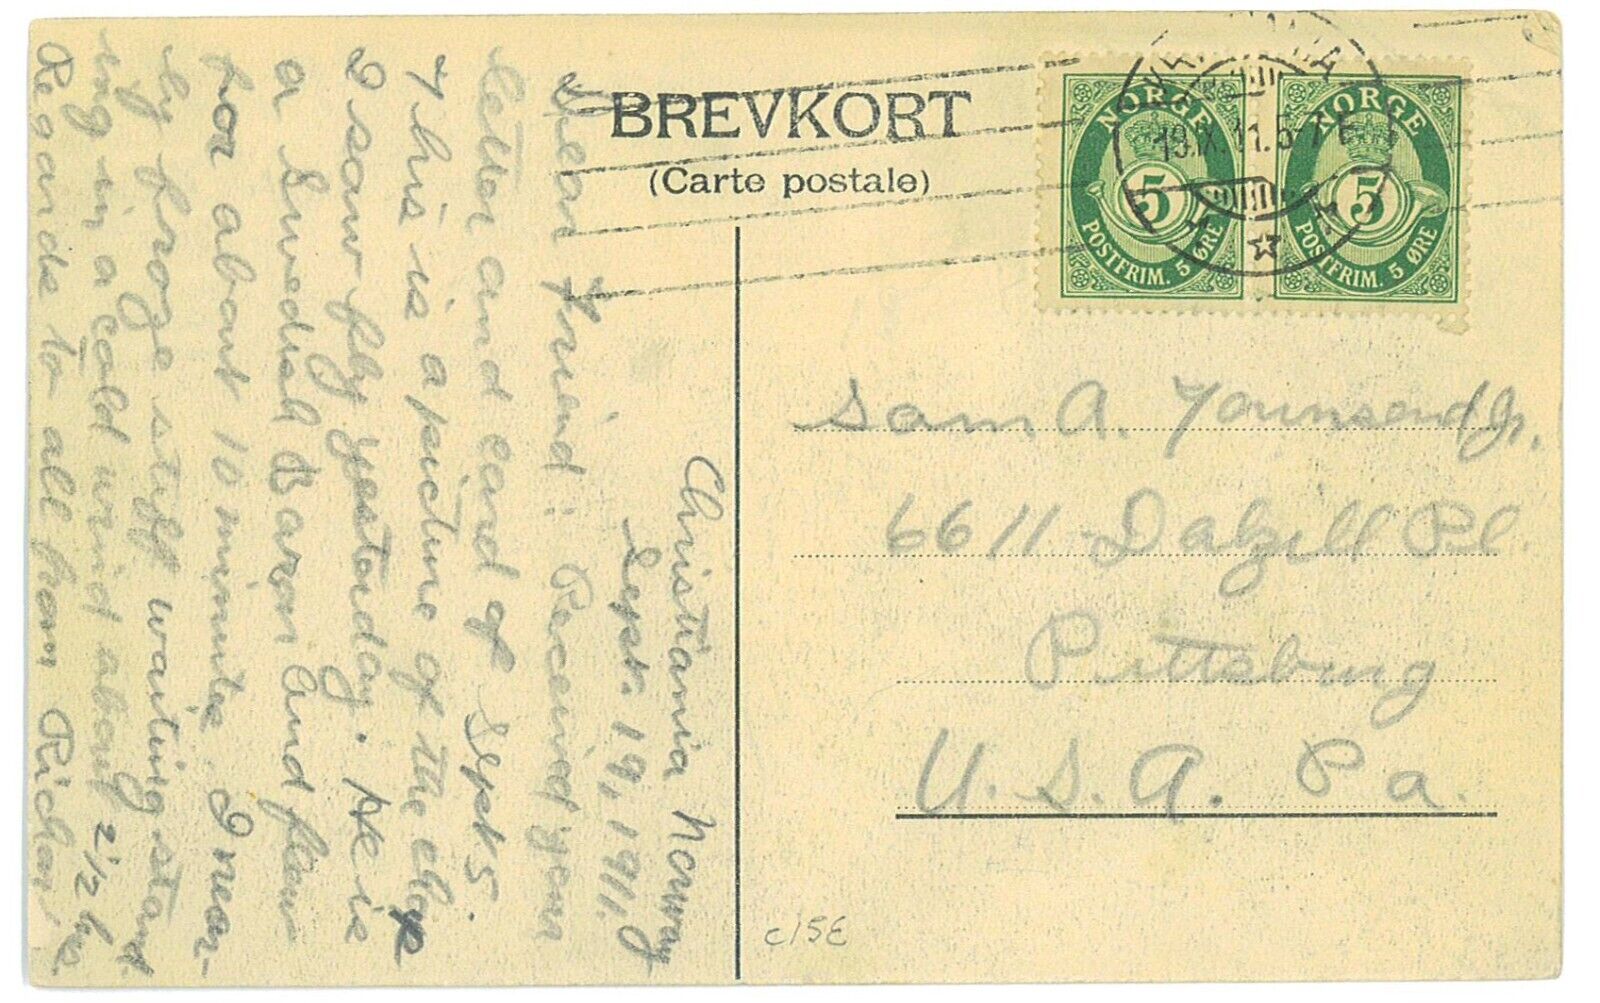 BREVKORT
(Carte postale)
NORGE
5
POSTFRIM. 5 ØRE
NORGE
5
POSTFRIM. 5 ØRE
19.IX.11.5-7 E
Christiania Norway
Sept. 19, 1911.
Dear Friend: Received your
letter and card of Sept 5.
This is a picture of the chap
I saw fly yesterday. He is
a Swedish Baron and flew
for about 10 minutes. I near-
ly froze stiff waiting stand-
ing in a cold wind about 2 1/2 hrs.
Regards to all from Richar
Sam A. Townsend Jr.
6611 Dalzell Pl.
Pittsburg
U. S. A. Pa.
c15E